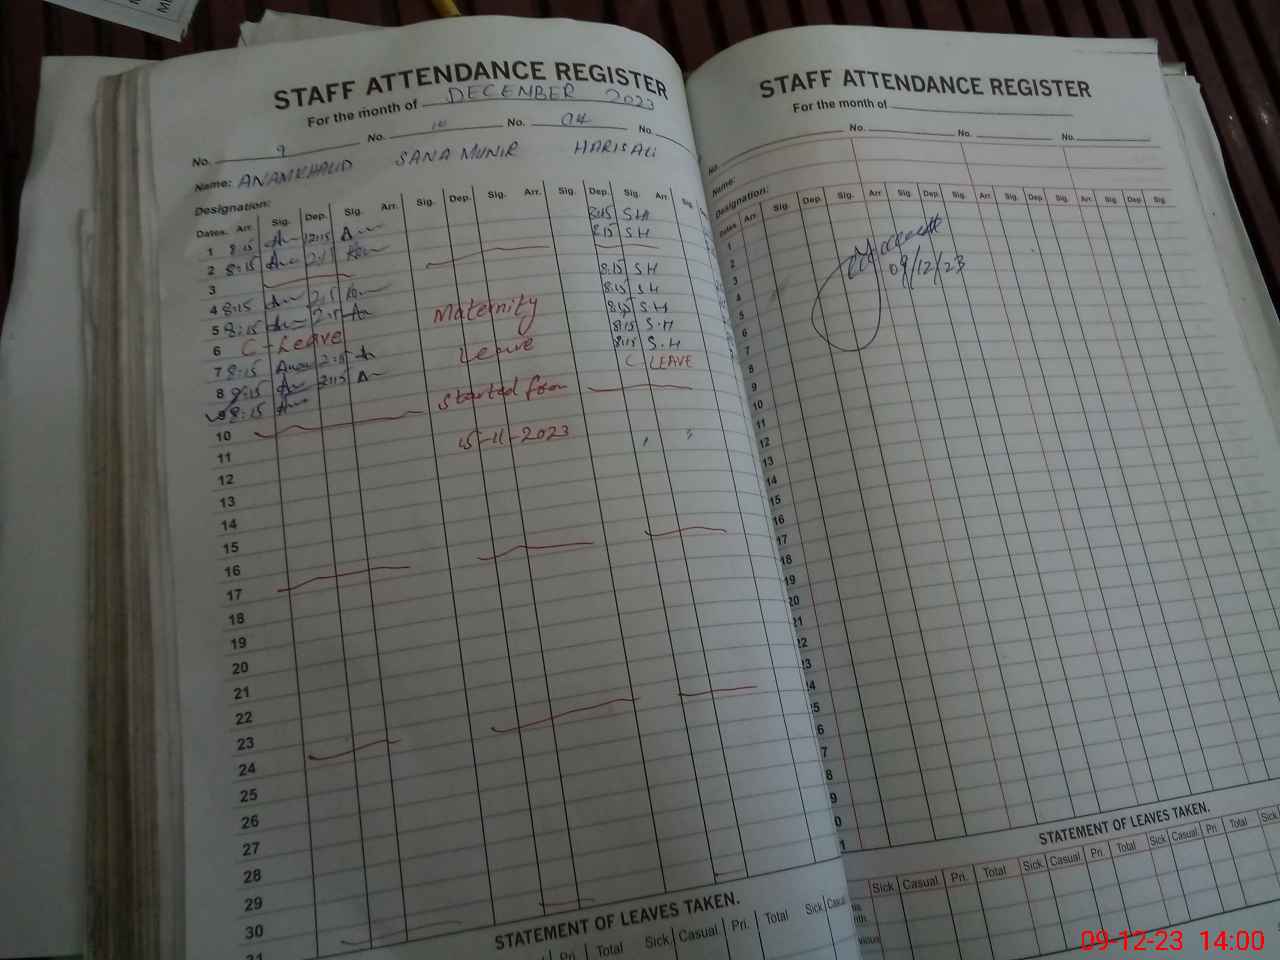 STAFF ATTENDANCE REGISTER
For the month of DECEMBER 2023
No. 9 No. 10 No. 04 No.
Name: ANAM KHALID SANA MUNIR HARIS ALI
Designation:
Dates. Arr. Sig. Dep. Sig. Arr. Sig. Dep. Sig. Arr. Sig. Dep. Sig. Arr. Sig.
1 8:15 12:15 8:15 S.H
2 8:15 2:15 8:15 S.H
3
4 8:15 2:15 8:15 S.H
5 8:15 2:15 8:15 S.H
6 C-Leave Maternity 8:15 S.H
7 8:15 2:15 Leave 8:15 S.H
8 8:15 2:15 8:15 S.H
9 8:15 started from C LEAVE
10
11 15-11-2023
12
13
14
15
16
17
18
19
20
21
22
23
24
25
26
27
28
29
30
31
STATEMENT OF LEAVES TAKEN.
Pri. Total Sick Casual Pri. Total Sick
STAFF ATTENDANCE REGISTER
For the month of
No. No. No. No.
Name:
Designation:
Dates Arr. Sig. Dep. Sig. Arr. Sig. Dep. Sig. Arr. Sig. Dep. Sig. Arr. Sig. Dep. Sig.
1
2
3
4
5
6
7
8
9
10
11
12
13
14
15
16
17
18
19
20
21
22
23
24
09/12/23
STATEMENT OF LEAVES TAKEN.
Sick Casual Pri. Total Sick Casual Pri. Total Sick Casual Pri Total Sick
09-12-23 14:00